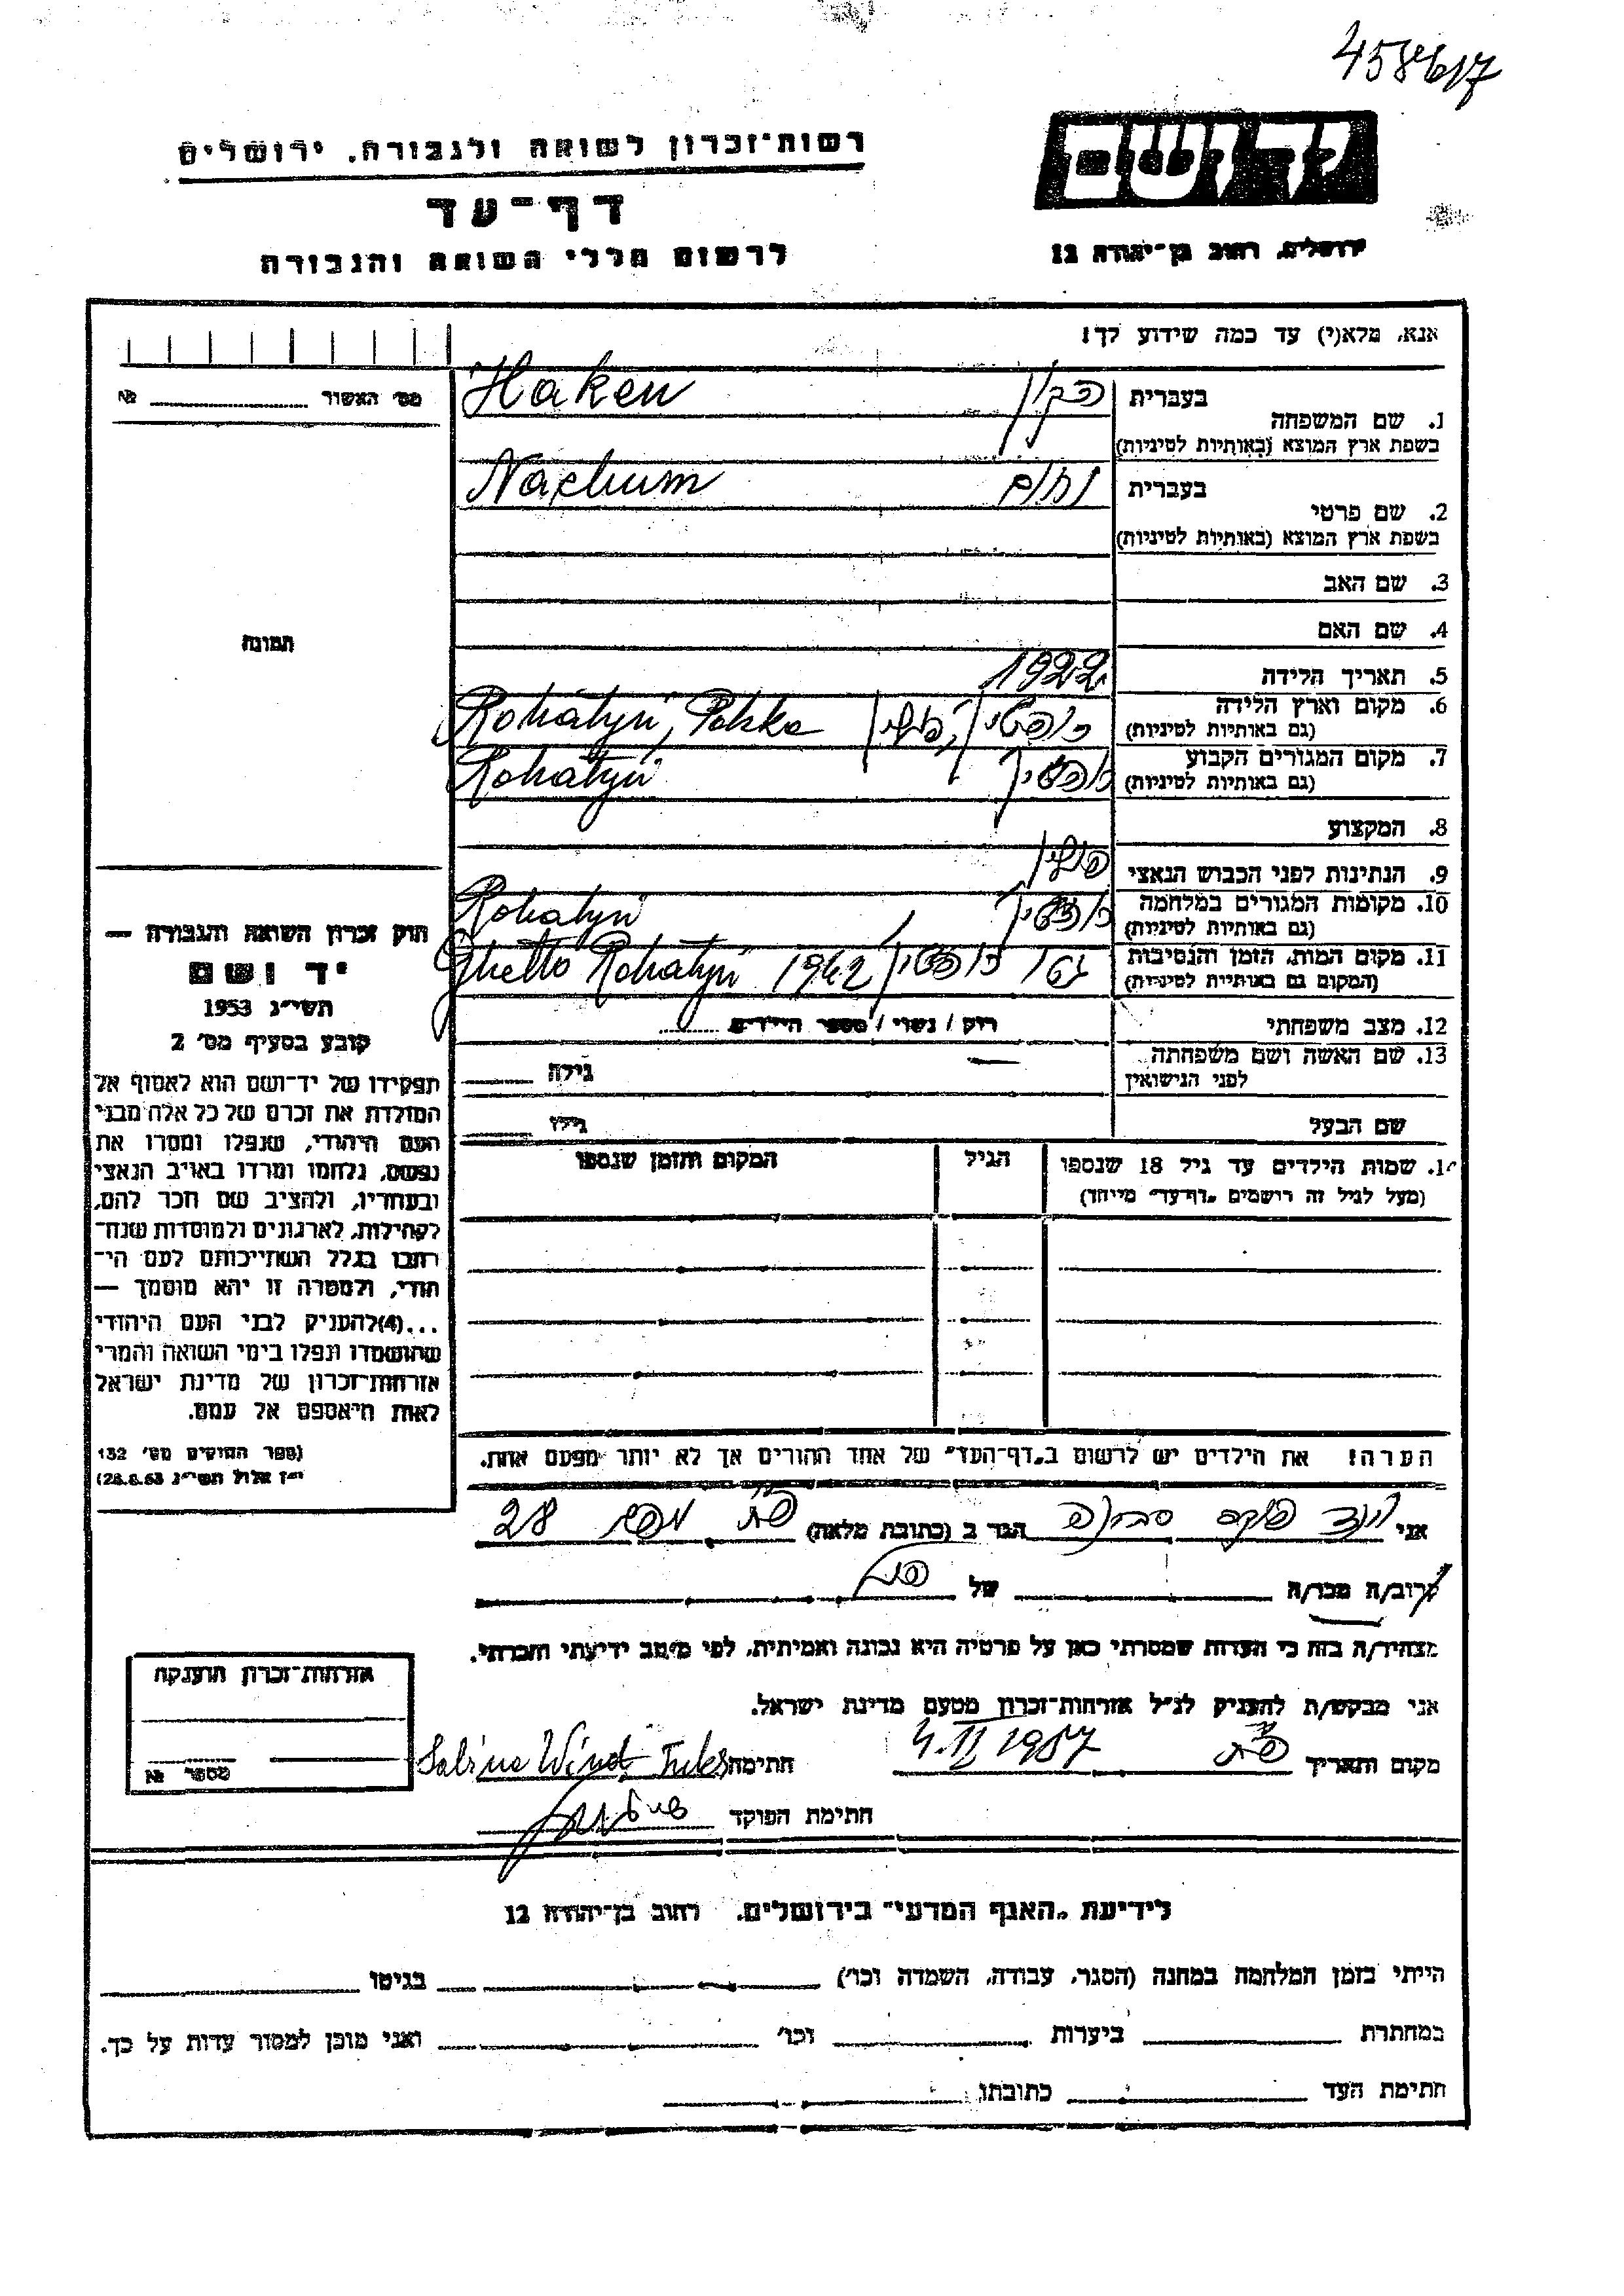 458617
רשות־זכרון לשואה ולגבורה, ירושלים
יד ושם
דף־עד
ירושלים, רחוב בן־יהודה 12
לרשום חללי השואה והגבורה
אנא, מלא(י) עד כמה שידוע לך!
מס׳ האשור № 
בעברית הקן Haken
1. שם המשפחה
בשפת ארץ המוצא (באותיות לטיניות)
בעברית נחום Nachum
2. שם פרטי
בשפת ארץ המוצא (באותיות לטיניות)
3. שם האב
4. שם האם
תמונה
5. תאריך הלידה 1922
6. מקום וארץ הלידה רוהטין, פולין Rohatyń, Polska
(גם באותיות לטיניות)
7. מקום המגורים הקבוע רוהטין Rohatyń
(גם באותיות לטיניות)
8. המקצוע
9. הנתינות לפני הכבוש הנאצי פולין
10. מקומות המגורים במלחמה רוהטין Rohatyń
(גם באותיות לטיניות)
11. מקום המות, הזמן והנסיבות גטו רוהטין 1942 Ghetto Rohatyń
(המקום גם באותיות לטיניות)
12. מצב משפחתי רווק / נשוי / מספר הילדים
13. שם האשה ושם משפחתה גילה
לפני הנישואין
שם הבעל גילו
14. שמות הילדים עד גיל 18 שנספו הגיל המקום והזמן שנספו
(מעל לגיל זה רושמים „דף־עד״ מייוחד)
הערה! את הילדים יש לרשום ב„דף־העד״ של אחד ההורים אך לא יותר מפעם אחת.
חוק זכרון השואה והגבורה —
יד ושם
תשי״ג 1953
קובע בסעיף מס׳ 2
תפקידו של יד־ושם הוא לאסוף אל
המולדת את זכרם של כל אלה מבני
העם היהודי, שנפלו ומסרו את
נפשם, נלחמו ומרדו באויב הנאצי
ובעוזריו, ולהציב שם וזכר להם,
לקהילות, לארגונים ולמוסדות שנח־
רבו בגלל השתייכותם לעם הי־
הודי, ולמטרה זו יהא מוסמך —
...(4)להעניק לבני העם היהודי
שהושמדו ונפלו בימי השואה והמרי
אזרחות־זכרון של מדינת ישראל
לאות היאספם אל עמם.
(ספר החוקים מס׳ 132
י״ז אלול תשי״ג 28.8.53)
אני וינד פוקס סבינה הגר ב (כתובת מלאה) 28
קרוב/ה מכר/ה של
מצהיר/ה בזה כי העדות שמסרתי כאן על פרטיה היא נכונה ואמיתית, לפי מיטב ידיעתי והכרתי.
אני מבקש/ת להעניק לנ״ל אזרחות־זכרון מטעם מדינת ישראל.
מקום ותאריך 4.II 1957 חתימה Sabina Wind Fuks
חתימת הפוקד
אזרחות־זכרון הוענקה
מספר №
לידיעת „האגף המדעי״ בירושלים, רחוב בן־יהודה 12
הייתי בזמן המלחמה במחנה (הסגר, עבודה, השמדה וכו׳) בגיטו
במחתרת ביערות וכו׳ ואני מוכן למסור עדות על כך.
חתימת העד כתובתו